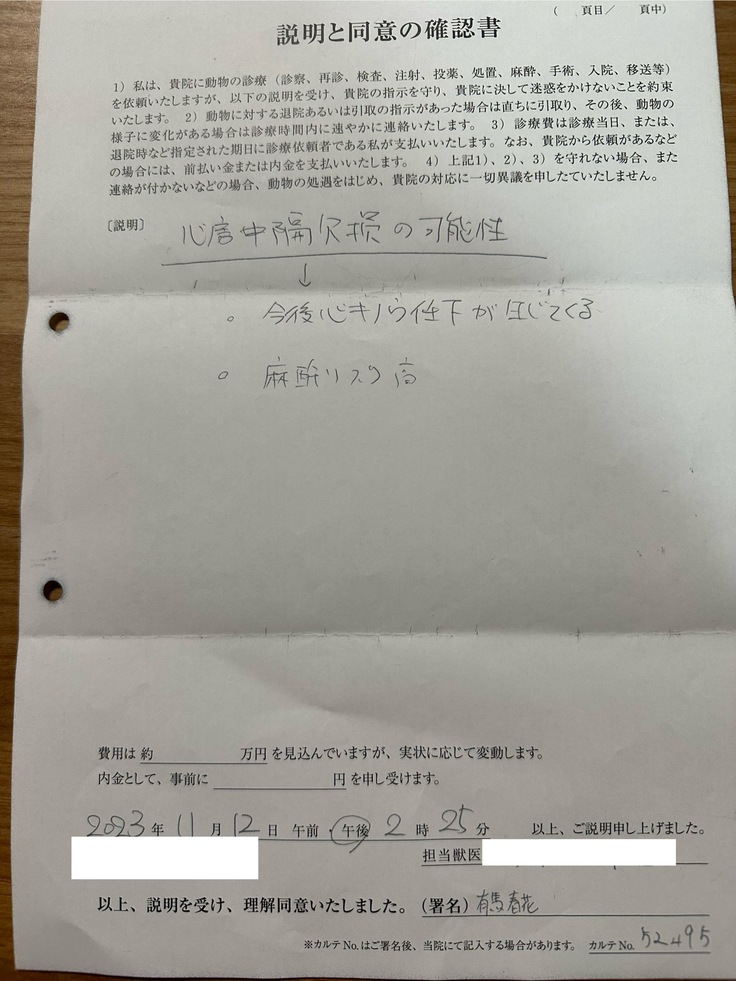 ( 頁目／ 頁中)
説明と同意の確認書
1）私は、貴院に動物の診療（診察、再診、検査、注射、投薬、処置、麻酔、手術、入院、移送等）
を依頼いたしますが、以下の説明を受け、貴院の指示を守り、貴院に決して迷惑をかけないことを約束
いたします。 2）動物に対する退院あるいは引取の指示があった場合は直ちに引取り、その後、動物の
様子に変化がある場合は診療時間内に速やかに連絡いたします。 3）診療費は診療当日、または、
退院時など指定された期日に診療依頼者である私が支払いいたします。なお、貴院から依頼があるなど
の場合には、前払い金または内金を支払いいたします。 4）上記1）、2）、3）を守れない場合、また
連絡が付かないなどの場合、動物の処遇をはじめ、貴院の対応に一切異議を申したていたしません。
〔説明〕 心室中隔欠損の可能性
↓
。 今後心キノウ低下が生じてくる
。 麻酔リスク高
費用は 約 万円 を見込んでいますが、実状に応じて変動します。
内金として、事前に 円 を申し受けます。
2023 年 11 月 12 日 午前・午後 2 時 25 分 以上、ご説明申し上げました。
担当獣医
以上、説明を受け、理解同意いたしました。（署名）有馬春花
※カルテNo.はご署名後、当院にて記入する場合があります。 カルテNo. 52495